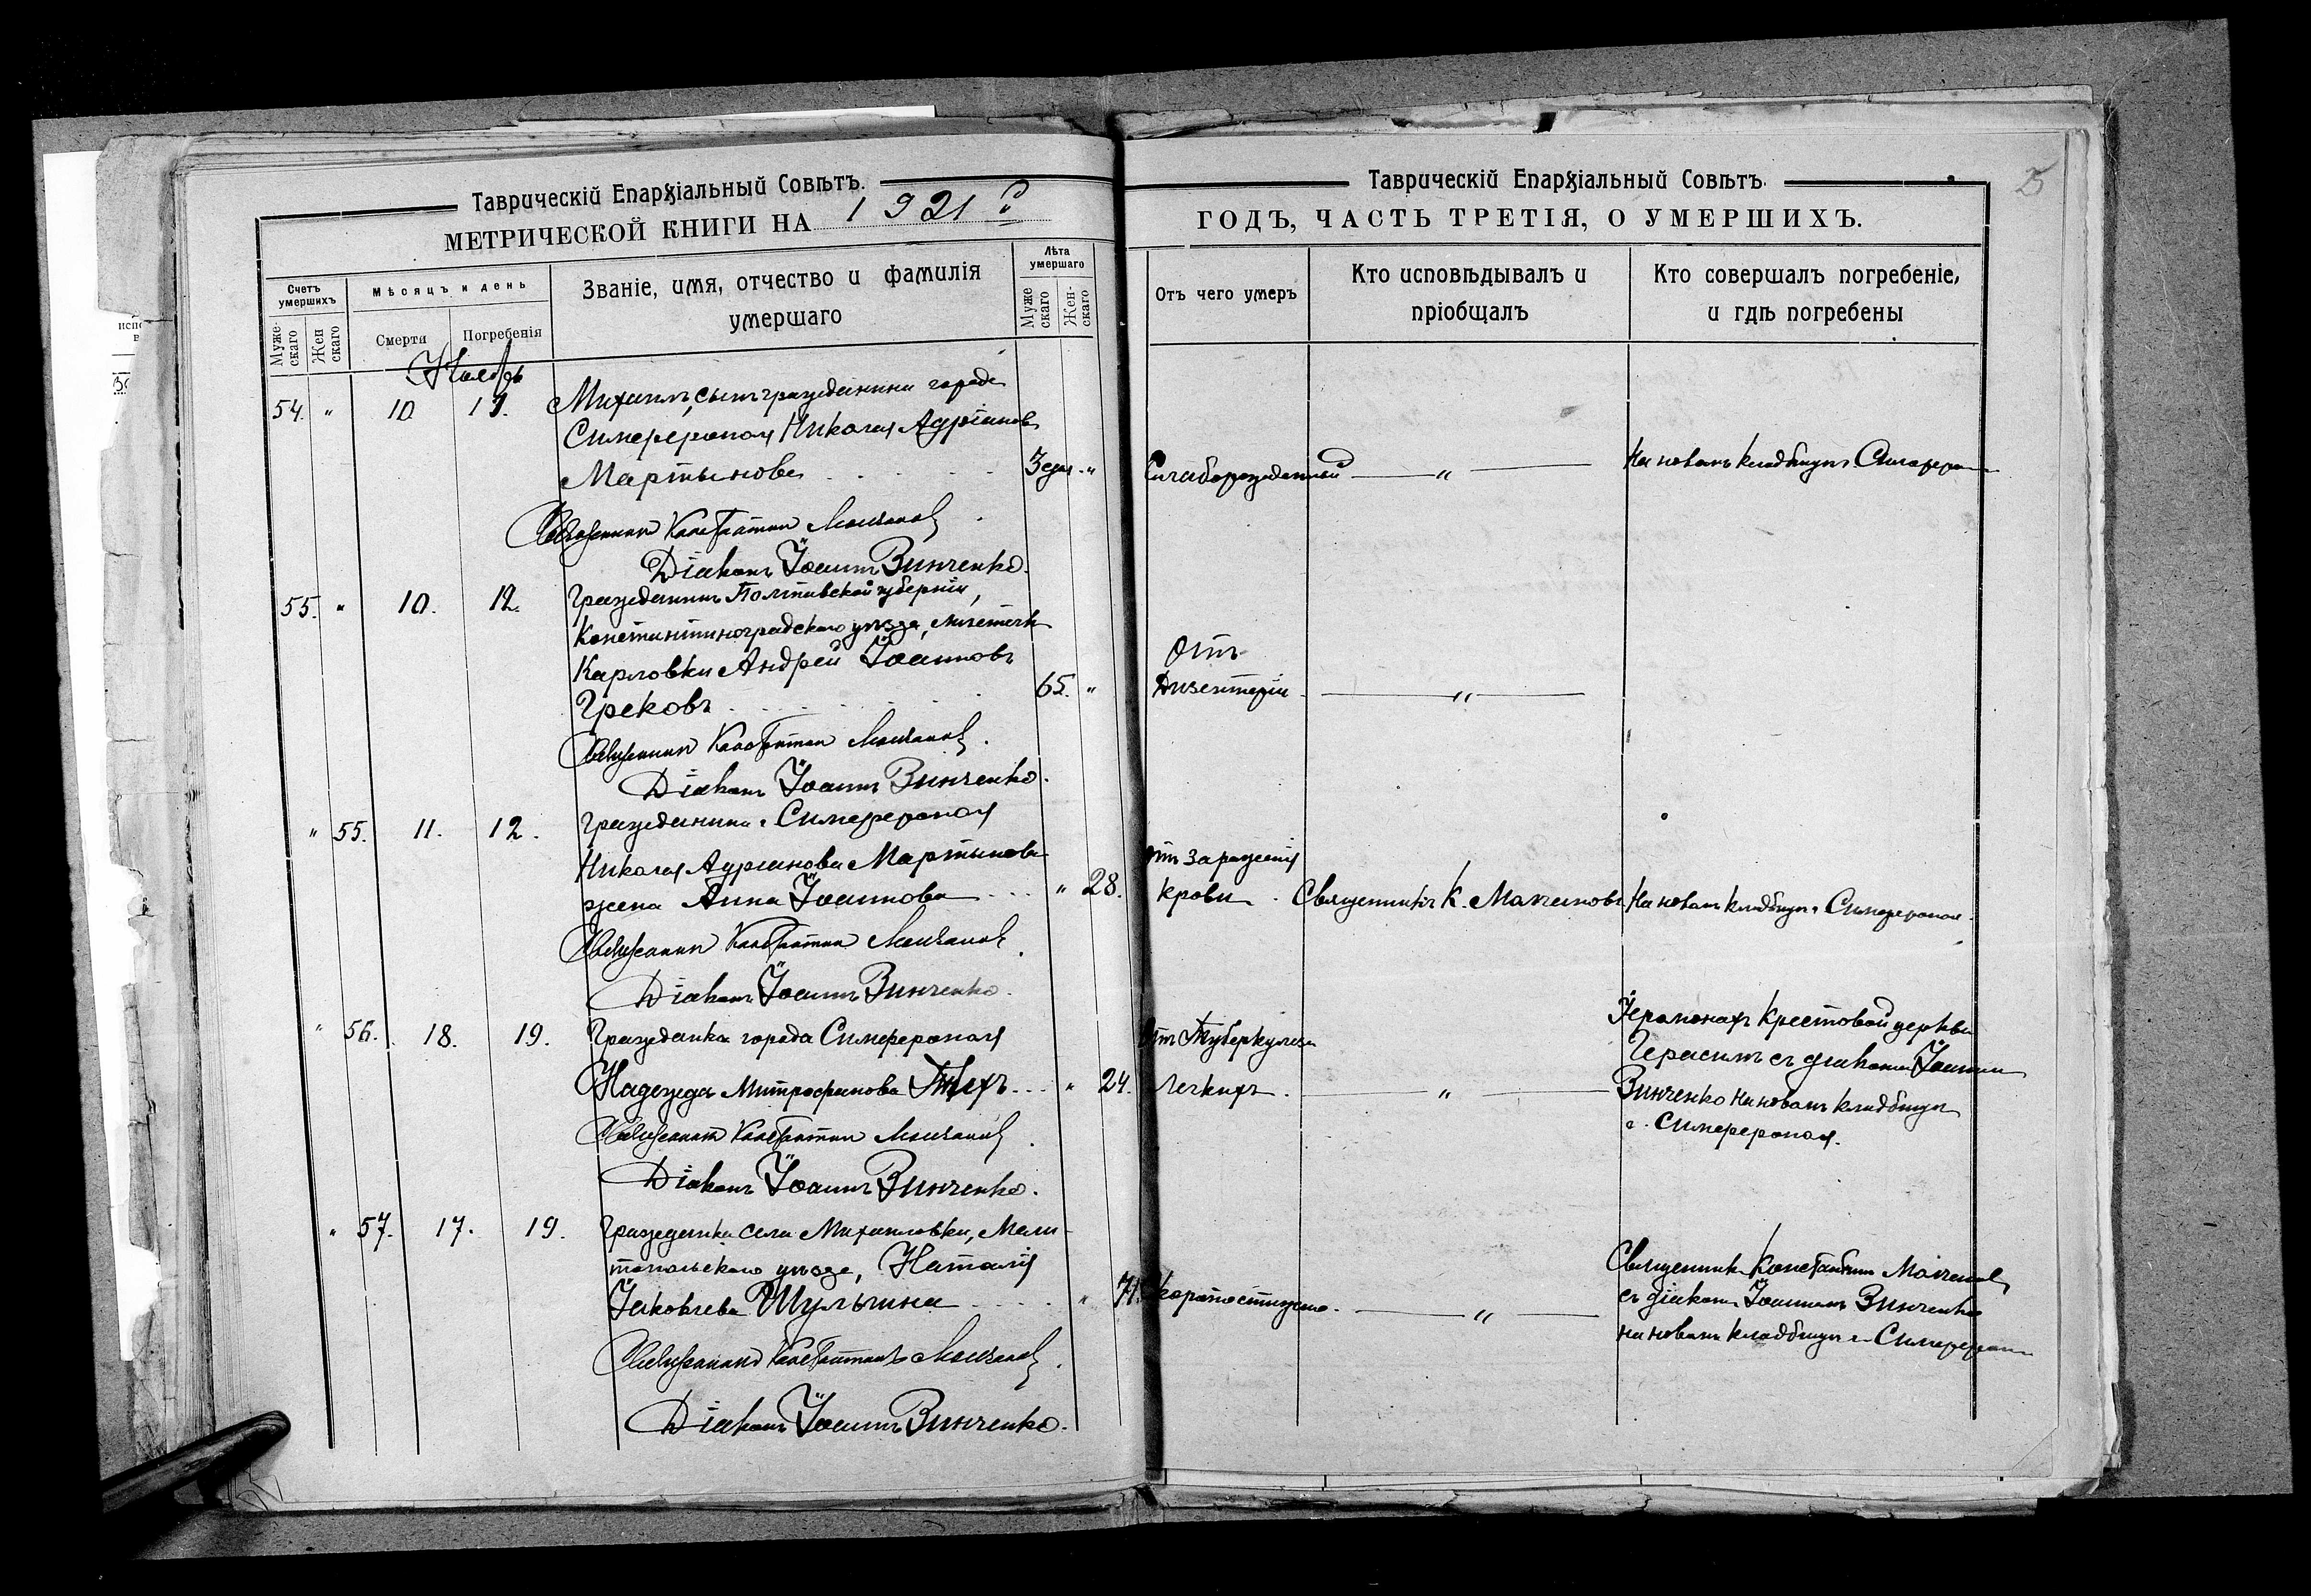 Таврическій Епархіальный Совѣтъ.
МЕТРИЧЕСКОЙ КНИГИ НА 1921 г.
Счетъ умершихъ
Муже-скаго
Жен скаго
Мѣсяцъ и день
Смерти
Погребенія
Званіе, имя, отчество и фамилія умершаго
Лѣта умершаго
Муже скаго
Жен-скаго
Ноябрь
54. " 10 11. Михаилъ, сынъ гражданина города
Симферополя Николая Адріанова
Мартынова 3 дня "
Священникъ Константин Молчановъ
Діаконъ Іоаннъ Винченко.
55. " 10. 12. Гражданинъ Полтавской губерніи,
Константиноградскаго уѣзда, мѣстечка
Карловки Андрей Іоанновъ
Грековъ 65. "
Священникъ Константин Молчановъ.
Діаконъ Іоаннъ Винченко.
" 55. 11. 12. Гражданина г. Симферополя
Николая Адріанова Мартынова
жена Анна Іоаннова " 28.
Священникъ Константин Молчановъ
Діаконъ Іоаннъ Винченко.
" 56. 18. 19. Гражданка города Симферополя
Надежда Митрофанова " 24.
Священникъ Константин Молчановъ
Діаконъ Іоаннъ Винченко.
" 57. 17. 19. Гражданка села Михайловки, Мели-
топольскаго уѣзда, Наталія
Іаковлева Шульгина " 71.
Священникъ Константинъ Молчановъ.
Діаконъ Іоаннъ Винченко.
Таврическій Епархіальный Совѣтъ.
25
ГОДЪ, ЧАСТЬ ТРЕТІЯ, О УМЕРШИХЪ.
Отъ чего умеръ
Кто исповѣдывалъ и пріобщалъ
Кто совершалъ погребеніе, и гдѣ погребены
Слаборожденный " На новомъ кладбищѣ Симферополя
Отъ
Дизентеріи "
Отъ зараженія
крови. Священникъ К. Молчановъ На новомъ кладбищѣ г. Симферополя.
Отъ Туберкулеза
легкихъ. "
Іеромонахъ Крестовой церкви
Герасимъ съ діакономъ Іоанномъ
Винченко на новомъ кладбищѣ
г. Симферополя.
Скоропостижно. "
Священникъ Константинъ Молчановъ
съ діакономъ Іоанномъ Винченко
на новомъ кладбищѣ г. Симферополя